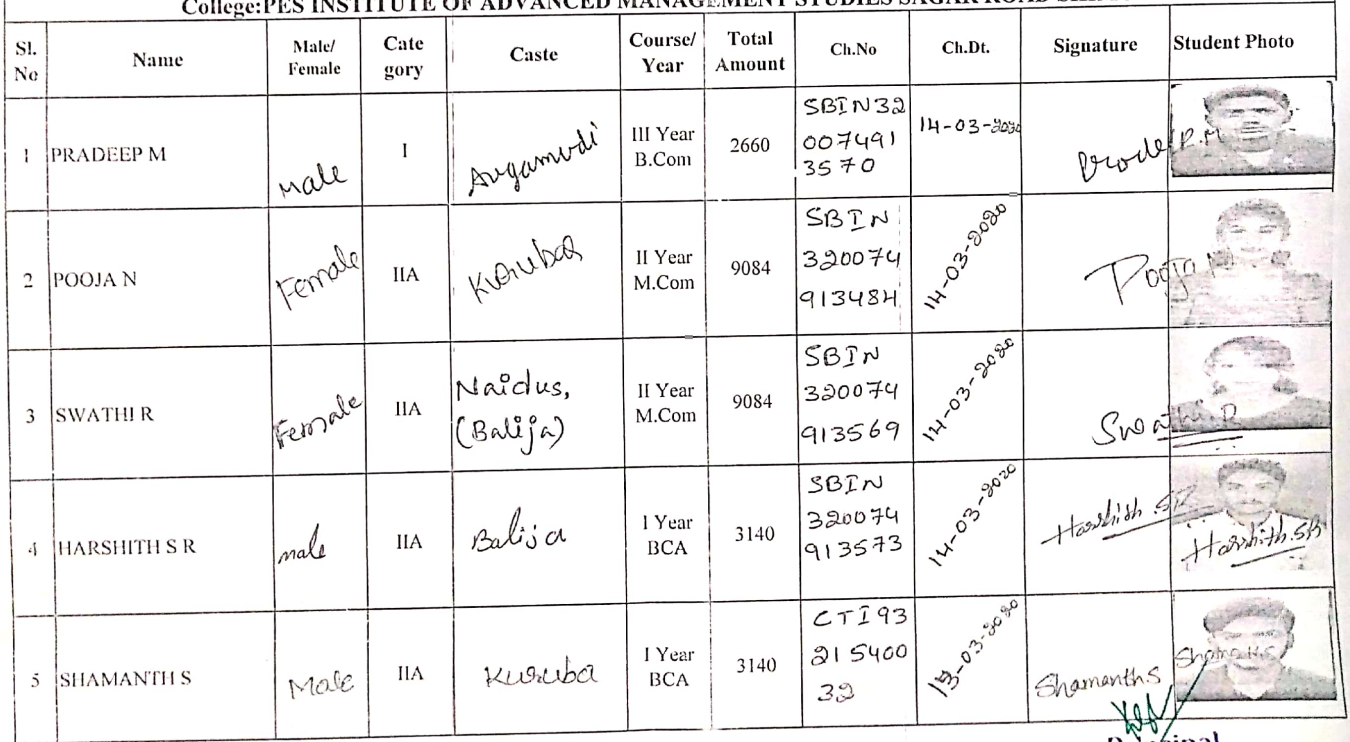 College:PES INSTITUTE OF ADVANCED MANAGEMENT STUDIES SAGAR ROAD
Sl. No Name Male/ Female Cate gory Caste Course/ Year Total Amount Ch.No Ch.Dt. Signature Student Photo
1 PRADEEP M Male I III Year B.Com 2660 SBIN32 0074913570 14-03-2020 P.M
2 POOJA N Female IIA Kuruba II Year M.Com 9084 SBIN 320074 913484 14-03-2020 Pooja N
3 SWATHI R Female IIA Naidus, (Balija) II Year M.Com 9084 SBIN 320074 913569 14-03-2020 Swathi.R
4 HARSHITH S R male IIA Balija I Year BCA 3140 SBIN 320074 913573 14-03-2020 Harshith.SR Harshith.SR
5 SHAMANTH S Male IIA Kuruba I Year BCA 3140 CTI93 215400 32 13-03-2020 Shamanth.S
Principal